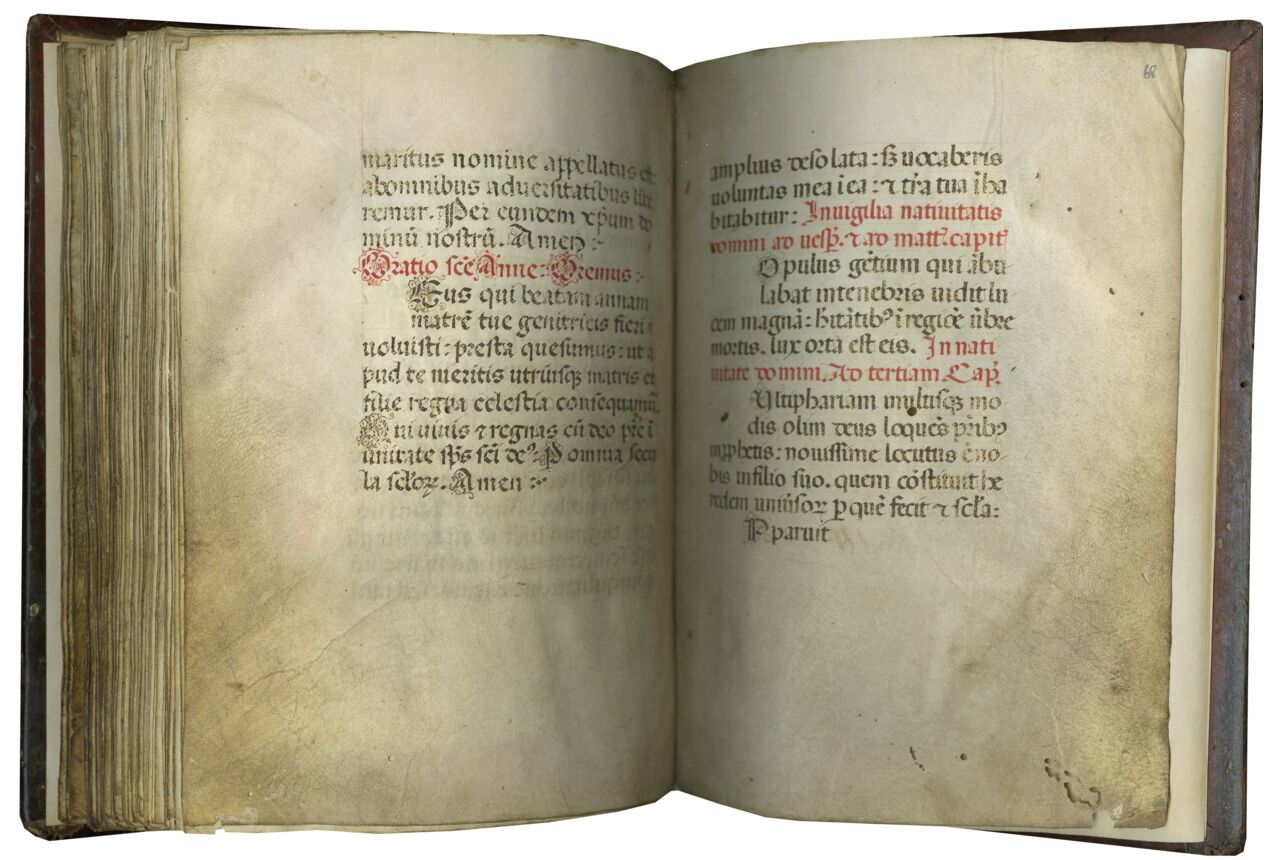 maritus nomine appellatus et
abomnibus aduersitatibus libe
remur. Per eundem xp̄um do
minū nostrū. Amen :~
Oratio scē Anne: Oremus:~
Deus qui beatam annam
matrē tue genitricis fieri
uoluisti: presta quesumus: ut a
pud te meritis utriusqꝫ matris et
filie regna celestia consequamur.
Qui uiuis ⁊ regnas cū deo pr̄e ī
unitate sp̄s sc̄i de⁹. P omnia secu
la sclōꝝ. Amen :~
68
amplius desolata: sꝫ uocaberis
uoluntas mea ī ea: ⁊ tr̄a tua īha
bitabitur: Inuigilia natiuitatis
domini ad uesp̄. ⁊ ad matt̄. capit̄
Opulus gētium qui ābu
labat intenebris uidit lu
cem magnā: hītātibꝰ ī regiōe ūbre
mortis. lux orta est eis. In nati
uitate domini. Ad tertiam. Cap̄.
Ultiphariam multisqꝫ mo
dis olim deus loquēs pr̄ibꝰ
inꝓphetis: nouissime locutus ē no
bis infilio suo. quem cōstituit he
redem uniūsoꝝ ꝑ quē fecit ⁊ sclā:
Pparuit